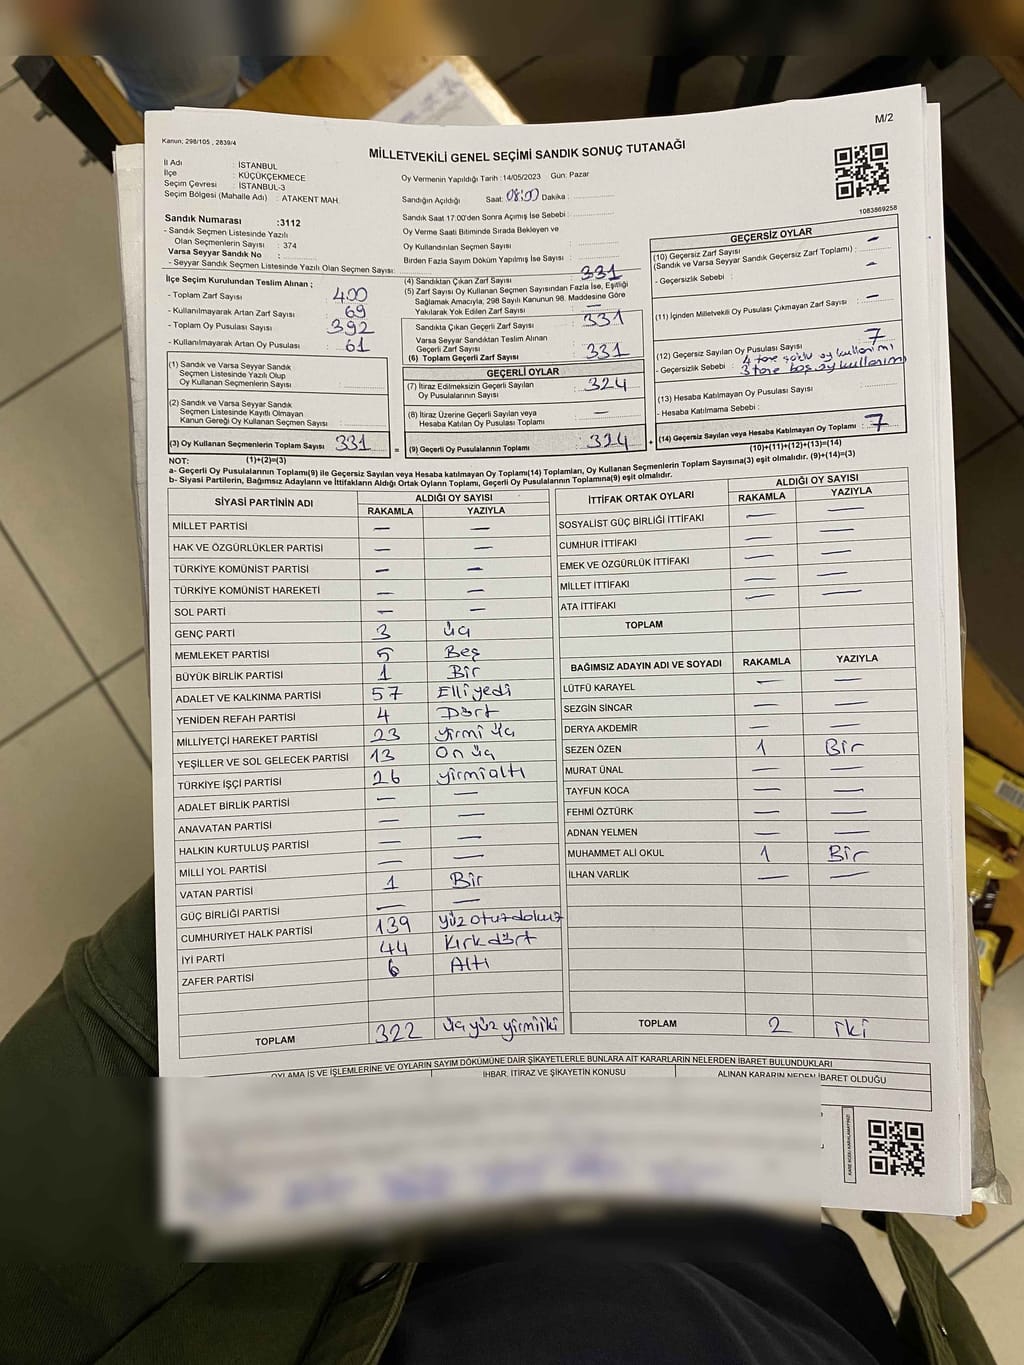 M/2
Kanun; 298/105 , 2839/4
MİLLETVEKİLİ GENEL SEÇİMİ SANDIK SONUÇ TUTANAĞI
İl Adı : İSTANBUL
İlçe : KÜÇÜKÇEKMECE
Seçim Çevresi : İSTANBUL-3
Seçim Bölgesi (Mahalle Adı) : ATAKENT MAH.
Sandık Numarası :3112
- Sandık Seçmen Listesinde Yazılı
Olan Seçmenlerin Sayısı : 374
Varsa Seyyar Sandık No :
- Seyyar Sandık Seçmen Listesinde Yazılı Olan Seçmen Sayısı:
Oy Vermenin Yapıldığı Tarih :14/05/2023 Gün: Pazar
Sandığın Açıldığı Saat: 08:00 Dakika :
Sandık Saat 17:00'den Sonra Açımış İse Sebebi :
Oy Verme Saati Bitiminde Sırada Bekleyen ve
Oy Kullandırılan Seçmen Sayısı :
Birden Fazla Sayım Döküm Yapılmış İse Sayısı :
1083869258
İlçe Seçim Kurulundan Teslim Alınan ;
- Toplam Zarf Sayısı : 400
- Kullanılmayarak Artan Zarf Sayısı : 69
- Toplam Oy Pusulası Sayısı : 392
- Kullanılmayarak Artan Oy Pusulası : 61
(1) Sandık ve Varsa Seyyar Sandık
Seçmen Listesinde Yazılı Olup
Oy Kullanan Seçmenlerin Sayısı :
(2) Sandık ve Varsa Seyyar Sandık
Seçmen Listesinde Kayıtlı Olmayan
Kanun Gereği Oy Kullanan Seçmen Sayısı :
(3) Oy Kullanan Seçmenlerin Toplam Sayısı : 331
(4) Sandıktan Çıkan Zarf Sayısı : 331
(5) Zarf Sayısı Oy Kullanan Seçmen Sayısından Fazla İse, Eşitliği
Sağlamak Amacıyla, 298 Sayılı Kanunun 98. Maddesine Göre
Yakılarak Yok Edilen Zarf Sayısı : —
Sandıkta Çıkan Geçerli Zarf Sayısı : 331
Varsa Seyyar Sandıktan Teslim Alınan
Geçerli Zarf Sayısı :
(6) Toplam Geçerli Zarf Sayısı : 331
GEÇERLİ OYLAR
(7) İtiraz Edilmeksizin Geçerli Sayılan
Oy Pusulasının Sayısı : 324
(8) İtiraz Üzerine Geçerli Sayılan veya
Hesaba Katılan Oy Pusulası Toplamı : —
= (9) Geçerli Oy Pusulalarının Toplamı : 324 +
GEÇERSİZ OYLAR
(10) Geçersiz Zarf Sayısı : —
(Sandık ve Varsa Seyyar Sandık Geçersiz Zarf Toplamı) :
- Geçersizlik Sebebi : —
(11) İçinden Milletvekili Oy Pusulası Çıkmayan Zarf Sayısı : —
(12) Geçersiz Sayılan Oy Pusulası Sayısı : 7
- Geçersizlik Sebebi : 4 tane oy kullanımı
3 tane boş oy kullanımı
(13) Hesaba Katılmayan Oy Pusulası Sayısı :
- Hesaba Katılmama Sebebi :
(14) Geçersiz Sayılan veya Hesaba Katılmayan Oy Toplamı : 7
NOT: (1)+(2)=(3)
(10)+(11)+(12)+(13)=(14)
a- Geçerli Oy Pusulalarının Toplamı(9) ile Geçersiz Sayılan veya Hesaba katılmayan Oy Toplamı(14) Toplamları, Oy Kullanan Seçmenlerin Toplam Sayısına(3) eşit olmalıdır. (9)+(14)=(3)
b- Siyasi Partilerin, Bağımsız Adayların ve İttifakların Aldığı Ortak Oyların Toplamı, Geçerli Oy Pusulalarının Toplamına(9) eşit olmalıdır.
SİYASİ PARTİNİN ADI ALDIĞI OY SAYISI
RAKAMLA YAZIYLA
MİLLET PARTİSİ — —
HAK VE ÖZGÜRLÜKLER PARTİSİ — —
TÜRKİYE KOMÜNİST PARTİSİ — —
TÜRKİYE KOMÜNİST HAREKETİ — —
SOL PARTİ — —
GENÇ PARTİ 3 üç
MEMLEKET PARTİSİ 5 Beş
BÜYÜK BİRLİK PARTİSİ 1 Bir
ADALET VE KALKINMA PARTİSİ 57 Elli yedi
YENİDEN REFAH PARTİSİ 4 Dört
MİLLİYETÇİ HAREKET PARTİSİ 23 yirmi üç
YEŞİLLER VE SOL GELECEK PARTİSİ 13 On üç
TÜRKİYE İŞÇİ PARTİSİ 26 yirmi altı
ADALET BİRLİK PARTİSİ — —
ANAVATAN PARTİSİ — —
HALKIN KURTULUŞ PARTİSİ — —
MİLLİ YOL PARTİSİ — —
VATAN PARTİSİ 1 Bir
GÜÇ BİRLİĞİ PARTİSİ — —
CUMHURİYET HALK PARTİSİ 139 yüz otuz dokuz
İYİ PARTİ 44 Kırk dört
ZAFER PARTİSİ 6 Altı
TOPLAM 322 üç yüz yirmi iki
İTTİFAK ORTAK OYLARI ALDIĞI OY SAYISI
RAKAMLA YAZIYLA
SOSYALİST GÜÇ BİRLİĞİ İTTİFAKI — —
CUMHUR İTTİFAKI — —
EMEK VE ÖZGÜRLÜK İTTİFAKI — —
MİLLET İTTİFAKI — —
ATA İTTİFAKI — —
TOPLAM
BAĞIMSIZ ADAYIN ADI VE SOYADI RAKAMLA YAZIYLA
LÜTFÜ KARAYEL — —
SEZGİN SİNCAR — —
DERYA AKDEMİR — —
SEZEN ÖZEN 1 Bir
MURAT ÜNAL — —
TAYFUN KOCA — —
FEHMİ ÖZTÜRK — —
ADNAN YELMEN — —
MUHAMMET ALİ OKUL 1 Bir
İLHAN VARLIK — —
TOPLAM 2 iki
OYLAMA İŞ VE İŞLEMLERİNE VE OYLARIN SAYIM DÖKÜMÜNE DAİR ŞİKAYETLERLE BUNLARA AİT KARARLARIN NELERDEN İBARET BULUNDUKLARI
İHBAR, İTİRAZ VE ŞİKAYETİN KONUSU
ALINAN KARARIN NEDEN İBARET OLDUĞU